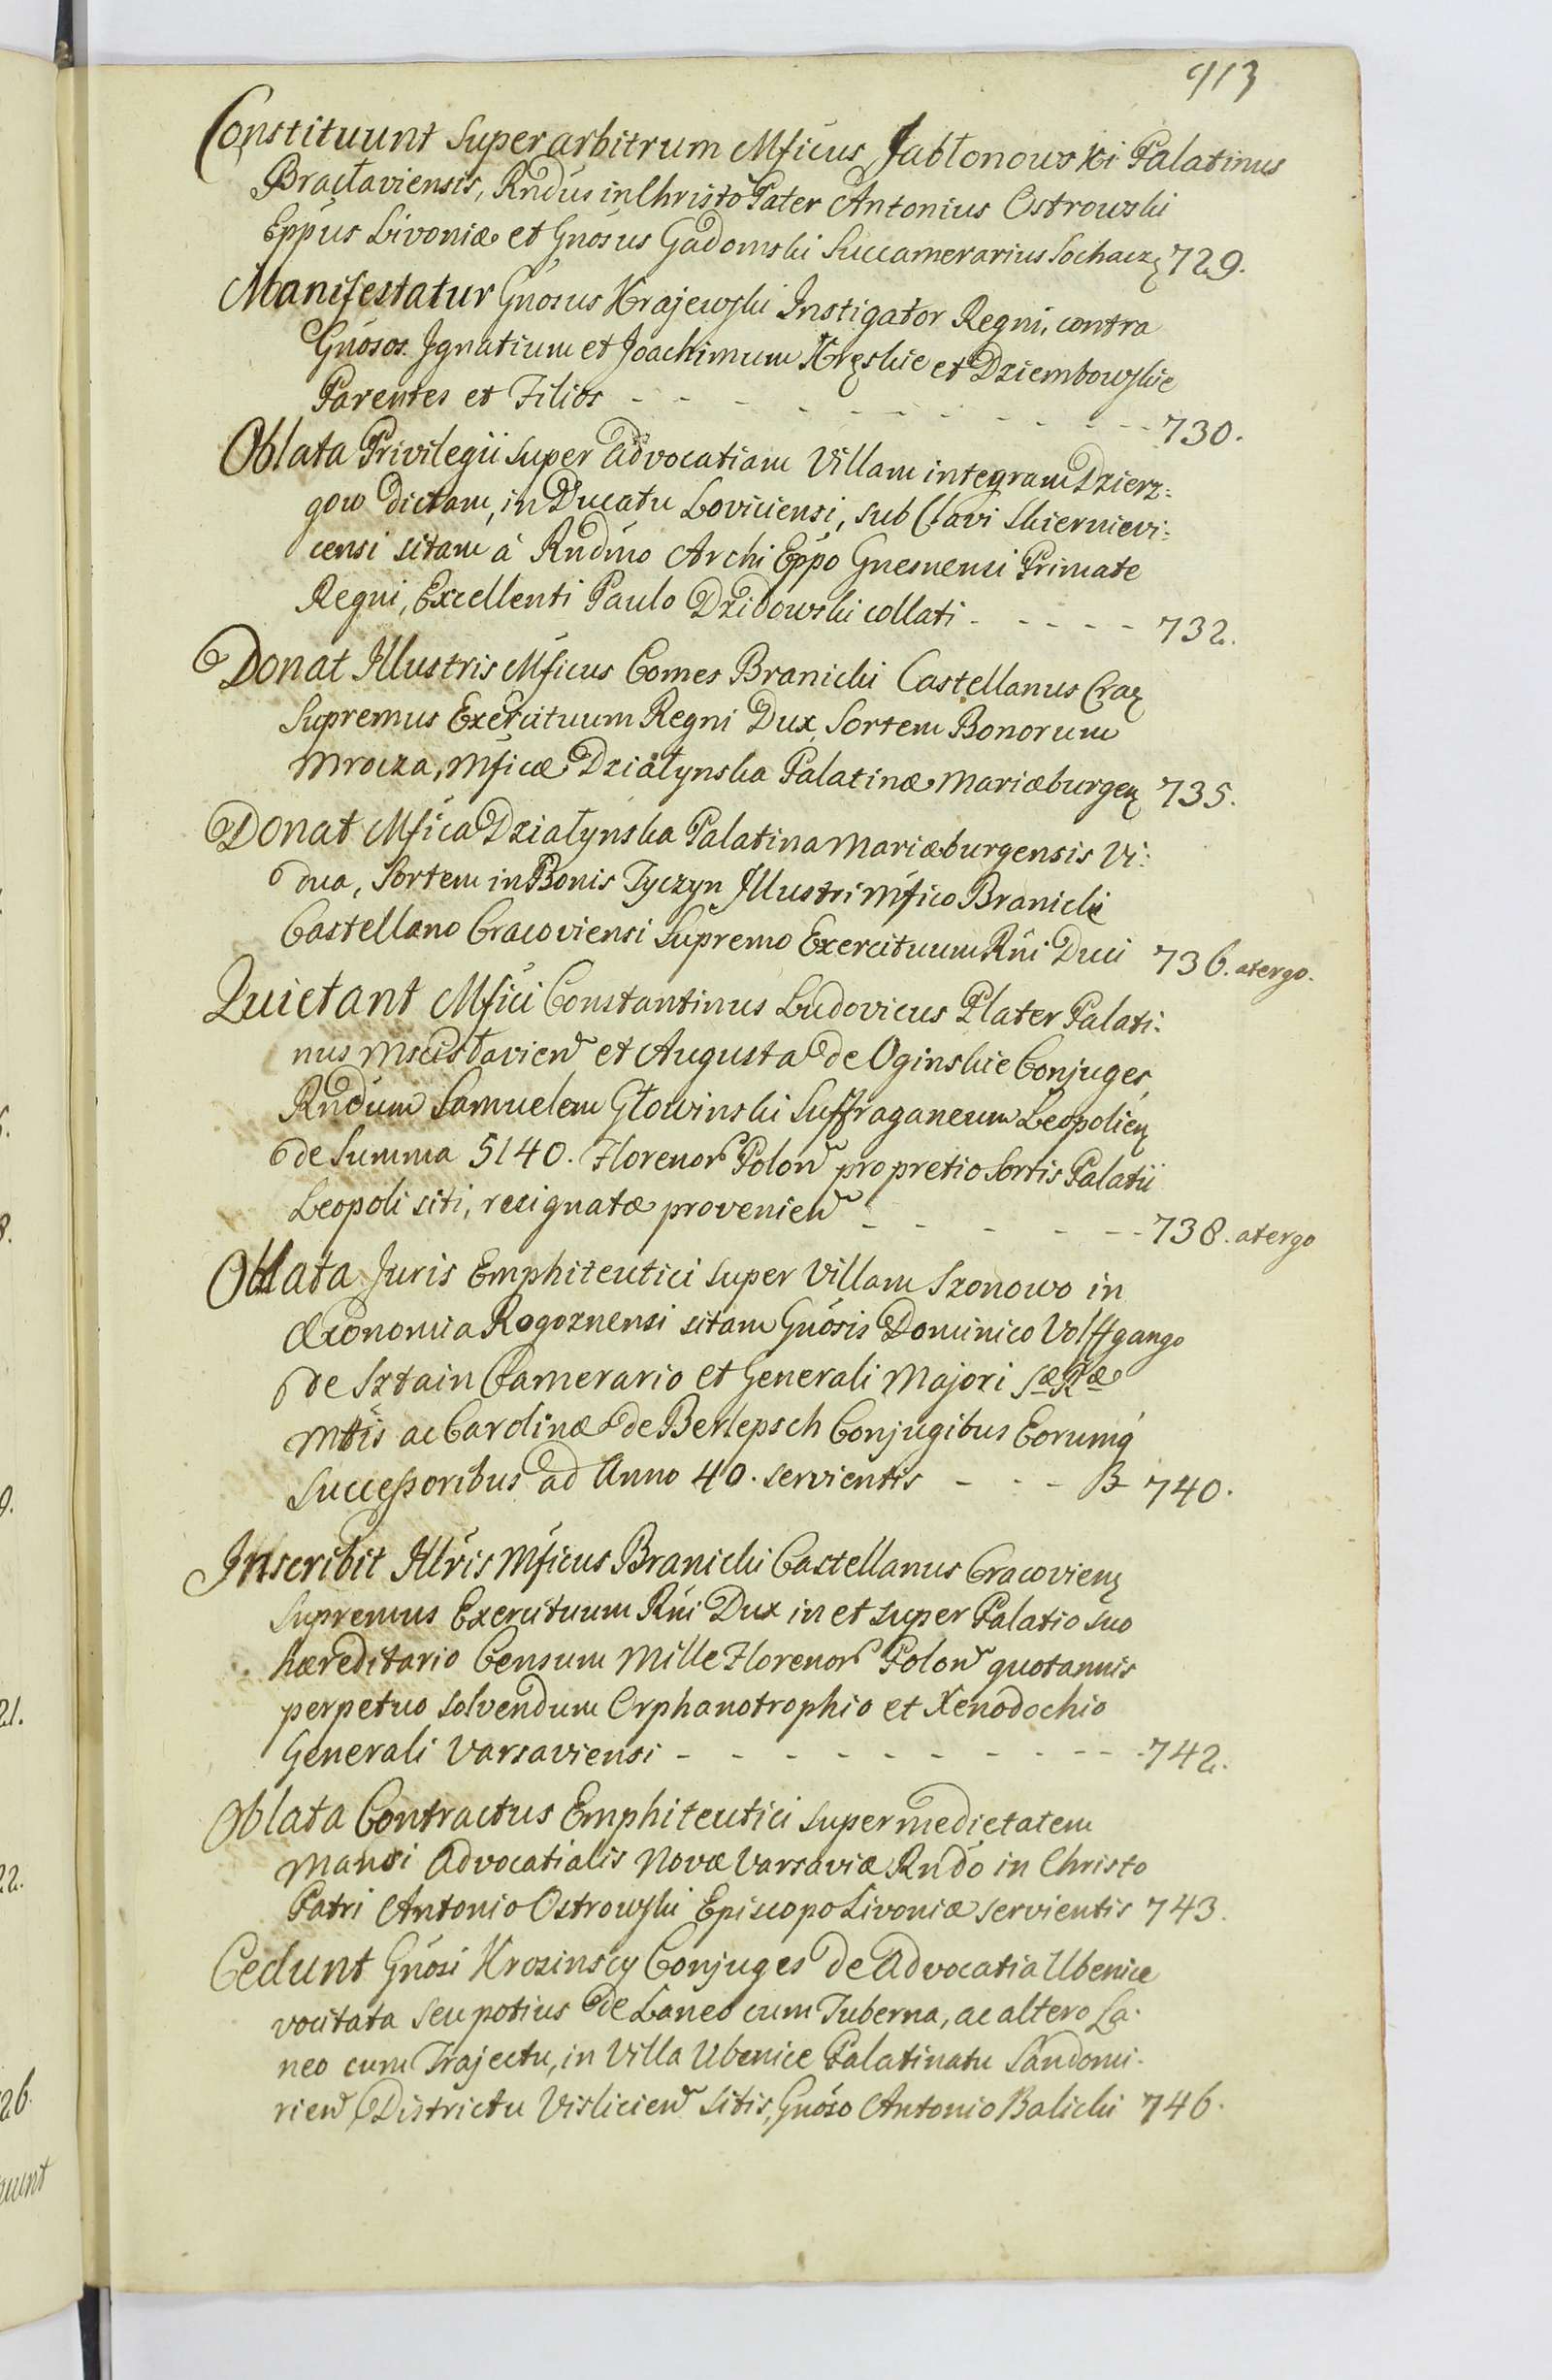 913
Constituunt Superarbitrum Mficus Jabłonowski Palatinus
Bracłaviensis, Rndus in Christo Pater Antonius Ostrowski
Eppus Livoniæ et Gnosus Gadomski Succamerarius Sochacz 729.
Manifestatur Gnosus Krajewski Instigator Regni, contra
Gnosos Ignatium et Joachimum Kręskie et Dziembowskie
Parentes et Filios - - - - - - - - - - 730.
Oblata Privilegii super advocatiam Villam integram Dzierz=
gow dictam, in Ducatu Loviciensi, sub Clavi Skiernievi=
censi sitam à Rndmo Archi Eppo Gnesnensi Primate
Regni, Excellenti Paulo Dzidowski collati - - - - - 732.
Donat Illustris Mficus Comes Branicki Castellanus Crac
Supremus Exercituum Regni Dux, Sortem Bonorum
Mrocza, Mficæ Działynska Palatinæ Mariæburgen 735.
Donat Mfica Działynska Palatina Mariæburgensis Vi=
dua, Sortem in Bonis Tyczyn Illustri Mfico Branicki
Castellano Cracoviensi Supremo Exercituum Rni Duci 736. atergo.
Quietant Mfici Constantinus Ludovicus Plater Palati=
nus Mscisłavien et Augusta de Oginskie Conjuges
Rndum Samuelem Głowinski Suffraganeum Leopolien
de Summa 5140. Florenor Polon pro pretio Sortis Palatii
Leopoli siti, resignatæ provenien - - - - - - 738. atergo
Oblata Juris Emphiteutici super Villam Szonowo in
Œconomia Rogoznensi sitam Gnosis Dominico Volffgango
de Sztain Camerario et Generali Majori Sæ Ræ
Mttis ac Carolinæ de Berlepsch Conjugibus Eorumq
Successoribus ad Anno 40. servientis - - - B 740.
Inscribit Illris Mficus Branicki Castellanus Cracovien
Supremus Exercituum Rni Dux in et super Palatio suo
hæreditario Censum Mille Florenor Polon quotannis
perpetuo solvendum Orphanotrophio et Xenodochio
Generali Varsaviensi - - - - - - - - - - 742.
Oblata Contractus Emphiteutici super medietatem
Mansi Advocatialis Novæ Varsaviæ Rndo in Christo
Patri Antonio Ostrowski Episcopo Livoniæ servientis 743.
Cedunt Gnosi Krosinscy Conjuges de Advocatia Ubenice
vocitata seu potius de Laneo cum Tuberna, ac altero La=
neo cum Trajectu, in Villa Ubenice Palatinatu Sandomi=
rien Districtu Vislicien sitis, Gnoso Antonio Balicki 746.